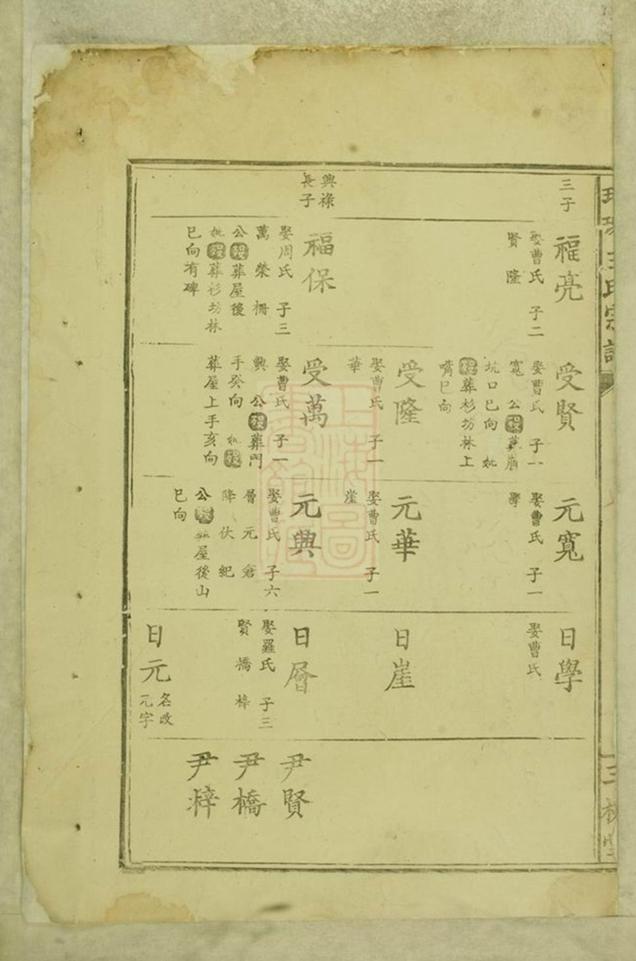 王氏宗譜
三子
福亮
娶曹氏 子二
賢 隆
興祿
長子
福保
娶周氏 子三
萬 榮 柵
公歿葬屋後
妣歿葬杉坊林
巳向有碑
受賢
娶曹氏 子一
寬 公歿葬廟
坑口巳向 妣
歿葬杉坊林上
嘴巳向
受隆
娶曹氏 子一
華
受萬
娶曹氏 子一
興 公歿葬門
手癸向 妣歿
葬屋上手亥向
元寬
娶曹氏 子一
學
元華
娶曹氏 子一
崖
元興
娶曹氏 子六
層 元 倉
降 伏 紀
公歿葬屋後山
巳向
日學
娶曹氏
日崖
日層
娶羅氏 子三
賢 橋 梓
日元
名改
元字
尹賢
尹橋
尹梓
三槐堂